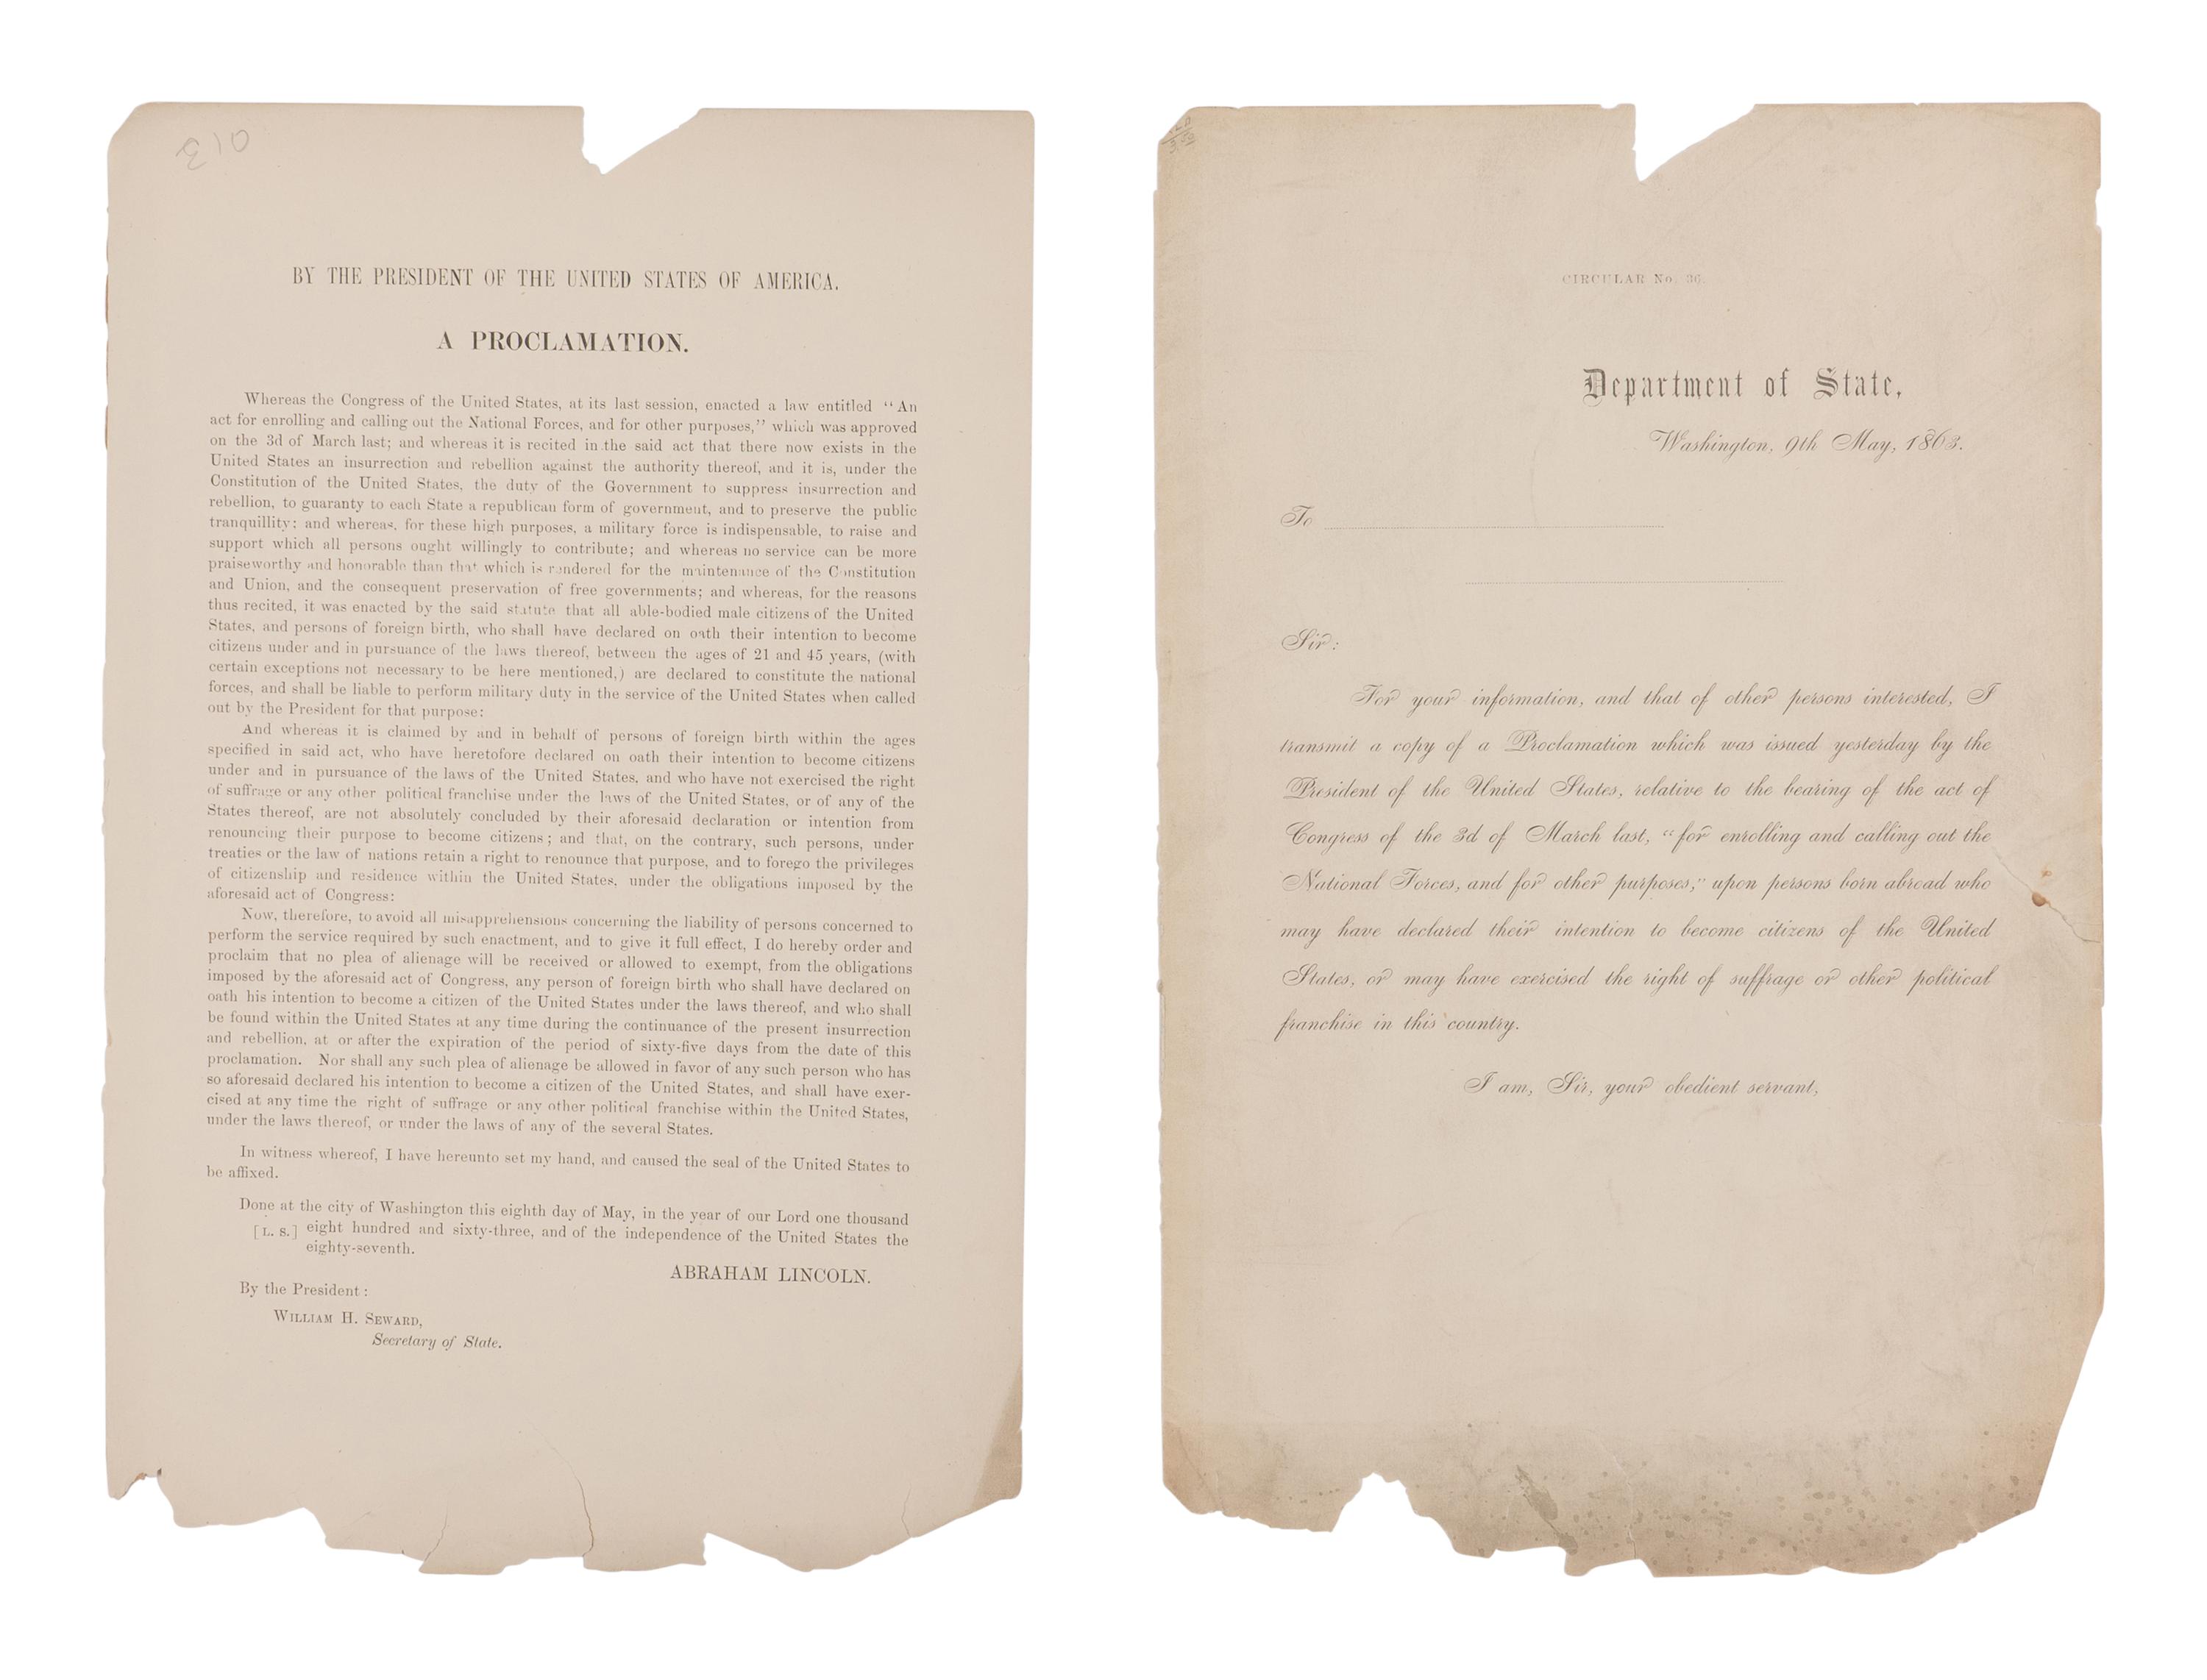 BY THE PRESIDENT OF THE UNITED STATES OF AMERICA.
A PROCLAMATION.
Whereas the Congress of the United States, at its last session, enacted a law entitled "An
act for enrolling and calling out the National Forces, and for other purposes," which was approved
on the 3d of March last; and whereas it is recited in the said act that there now exists in the
United States an insurrection and rebellion against the authority thereof, and it is, under the
Constitution of the United States, the duty of the Government to suppress insurrection and
rebellion, to guaranty to each State a republican form of government, and to preserve the public
tranquillity; and whereas, for these high purposes, a military force is indispensable, to raise and
support which all persons ought willingly to contribute; and whereas no service can be more
praiseworthy and honorable than that which is rendered for the maintenance of the Constitution
and Union, and the consequent preservation of free governments; and whereas, for the reasons
thus recited, it was enacted by the said statute that all able-bodied male citizens of the United
States, and persons of foreign birth, who shall have declared on oath their intention to become
citizens under and in pursuance of the laws thereof, between the ages of 21 and 45 years, (with
certain exceptions not necessary to be here mentioned,) are declared to constitute the national
forces, and shall be liable to perform military duty in the service of the United States when called
out by the President for that purpose:
And whereas it is claimed by and in behalf of persons of foreign birth within the ages
specified in said act, who have heretofore declared on oath their intention to become citizens
under and in pursuance of the laws of the United States, and who have not exercised the right
of suffrage or any other political franchise under the laws of the United States, or of any of the
States thereof, are not absolutely concluded by their aforesaid declaration or intention from
renouncing their purpose to become citizens; and that, on the contrary, such persons, under
treaties or the law of nations retain a right to renounce that purpose, and to forego the privileges
of citizenship and residence within the United States, under the obligations imposed by the
aforesaid act of Congress:
Now, therefore, to avoid all misapprehensions concerning the liability of persons concerned to
perform the service required by such enactment, and to give it full effect, I do hereby order and
proclaim that no plea of alienage will be received or allowed to exempt, from the obligations
imposed by the aforesaid act of Congress, any person of foreign birth who shall have declared on
oath his intention to become a citizen of the United States under the laws thereof, and who shall
be found within the United States at any time during the continuance of the present insurrection
and rebellion, at or after the expiration of the period of sixty-five days from the date of this
proclamation. Nor shall any such plea of alienage be allowed in favor of any such person who has
so aforesaid declared his intention to become a citizen of the United States, and shall have exer-
cised at any time the right of suffrage or any other political franchise within the United States,
under the laws thereof, or under the laws of any of the several States.
In witness whereof, I have hereunto set my hand, and caused the seal of the United States to
be affixed.
Done at the city of Washington this eighth day of May, in the year of our Lord one thousand
[L. S.] eight hundred and sixty-three, and of the independence of the United States the
eighty-seventh.
ABRAHAM LINCOLN.
By the President:
WILLIAM H. SEWARD,
Secretary of State.
CIRCULAR No. 36.
Department of State,
Washington, 9th May, 1863.
To
Sir:
For your information, and that of other persons interested, I
transmit a copy of a Proclamation which was issued yesterday by the
President of the United States, relative to the bearing of the act of
Congress of the 3d of March last, "for enrolling and calling out the
National Forces, and for other purposes," upon persons born abroad who
may have declared their intention to become citizens of the United
States, or may have exercised the right of suffrage or other political
franchise in this country.
I am, Sir, your obedient servant,